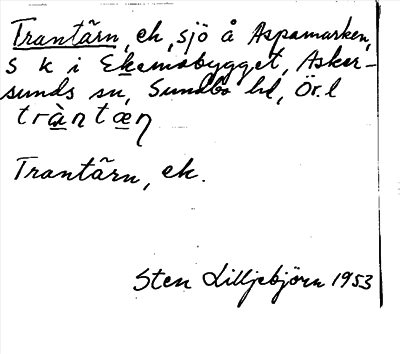 Trantärn, ek, sjö å Aspamarken,
s k i Ekamobygget, Asker-
sunds sn, Sundbo hd, Ör. l
tràntæn
Trantärn, ek.
Sten Lilljebjörn 1953